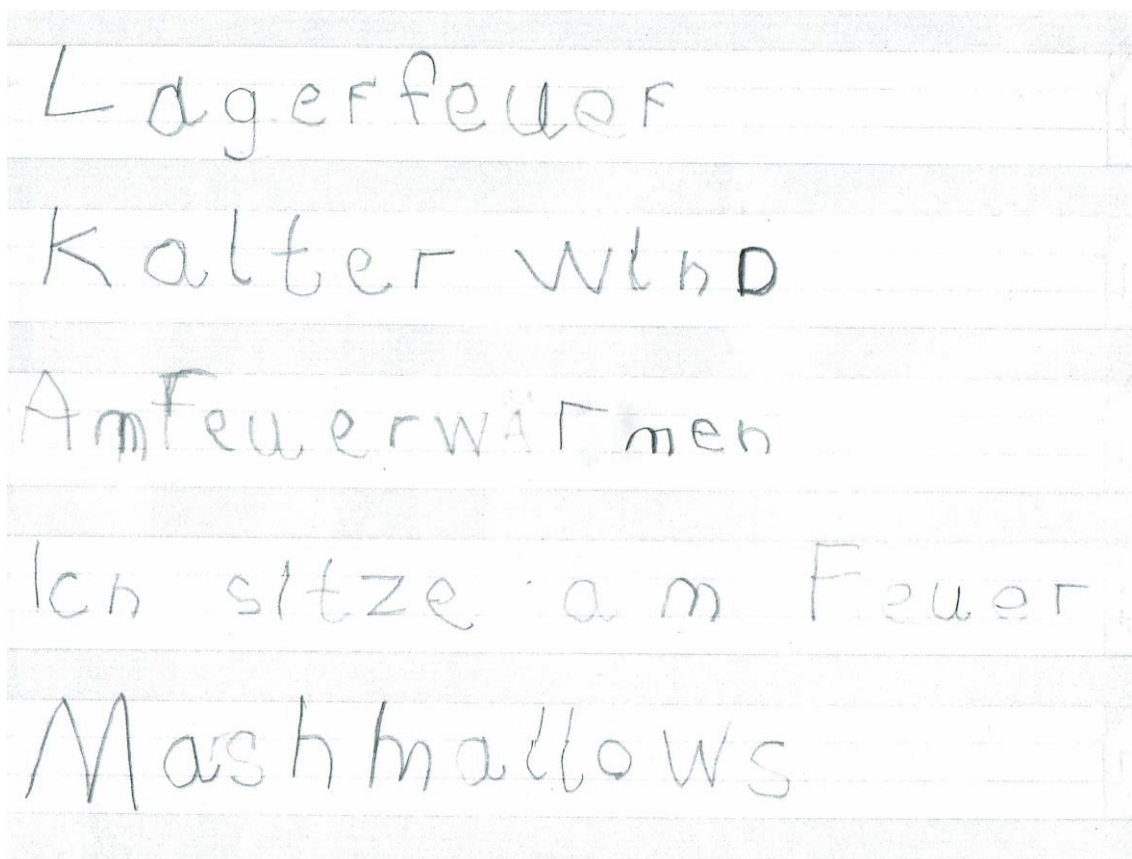 Lagerfeuer
Kalter WinD
AmFeuerwÄrmen
Ich sitze am Feuer
Mashmallows